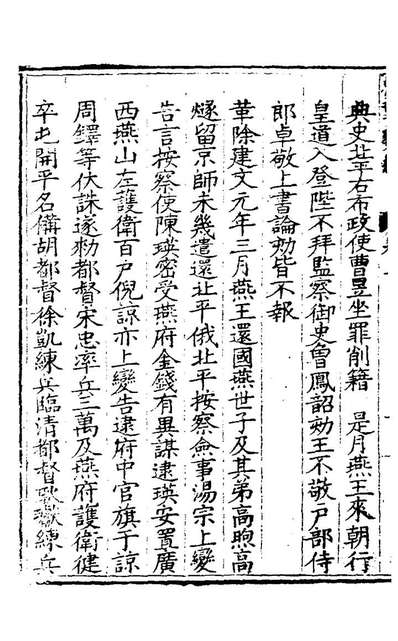 典史北平右布政使曹昱坐罪削籍　是月燕王來朝行
皇道入登陛不拜監察御史曾鳳韶劾王不敬戶部侍
郎卓敬上書論劾皆不報
革除建文元年三月燕王還國燕世子及其弟高煦高
燧留京師未幾遣還北平俄北平按察僉事湯宗上變
告言按察使陳瑛密受燕府金錢有異謀逮瑛安置廣
西燕山左護衛百戶倪諒亦上變告逮府中官旗于諒
周鐸等伏誅遂勑都督宋忠率兵三萬及燕府護衛健
卒屯開平名備胡都督徐凱練兵臨清都督耿瓛練兵